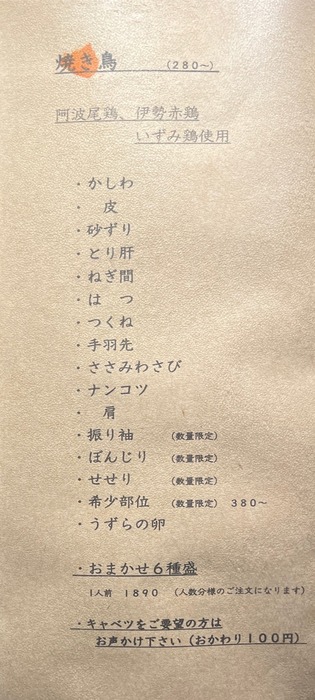 焼き鳥 (280〜)
阿波尾鶏、伊勢赤鶏
いずみ鶏使用
・かしわ
・ 皮
・砂ずり
・とり肝
・ねぎ間
・は つ
・つくね
・手羽先
・ささみわさび
・ナンコツ
・ 肩
・振り袖 (数量限定)
・ぼんじり (数量限定)
・せせり (数量限定)
・希少部位 (数量限定) 380〜
・うずらの卵
・おまかせ6種盛
1人前 1890 (人数分様のご注文になります)
・キャベツをご要望の方は
お声かけ下さい (おかわり100円)